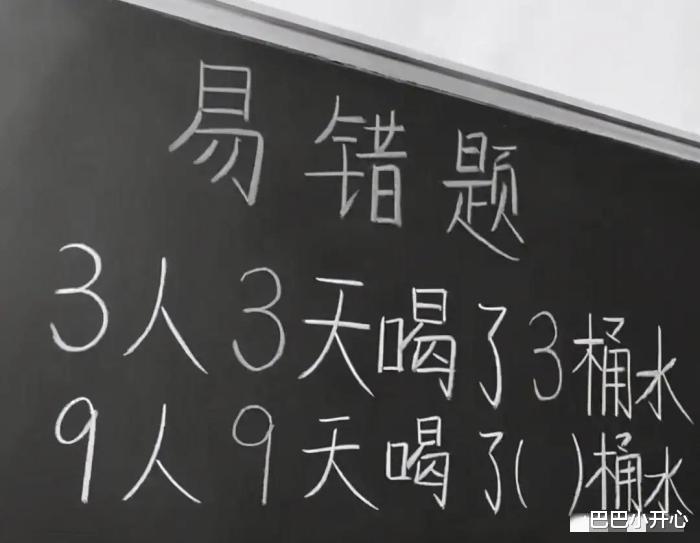 易错题
3人3天喝了3桶水
9人9天喝了( )桶水
巴巴小开心